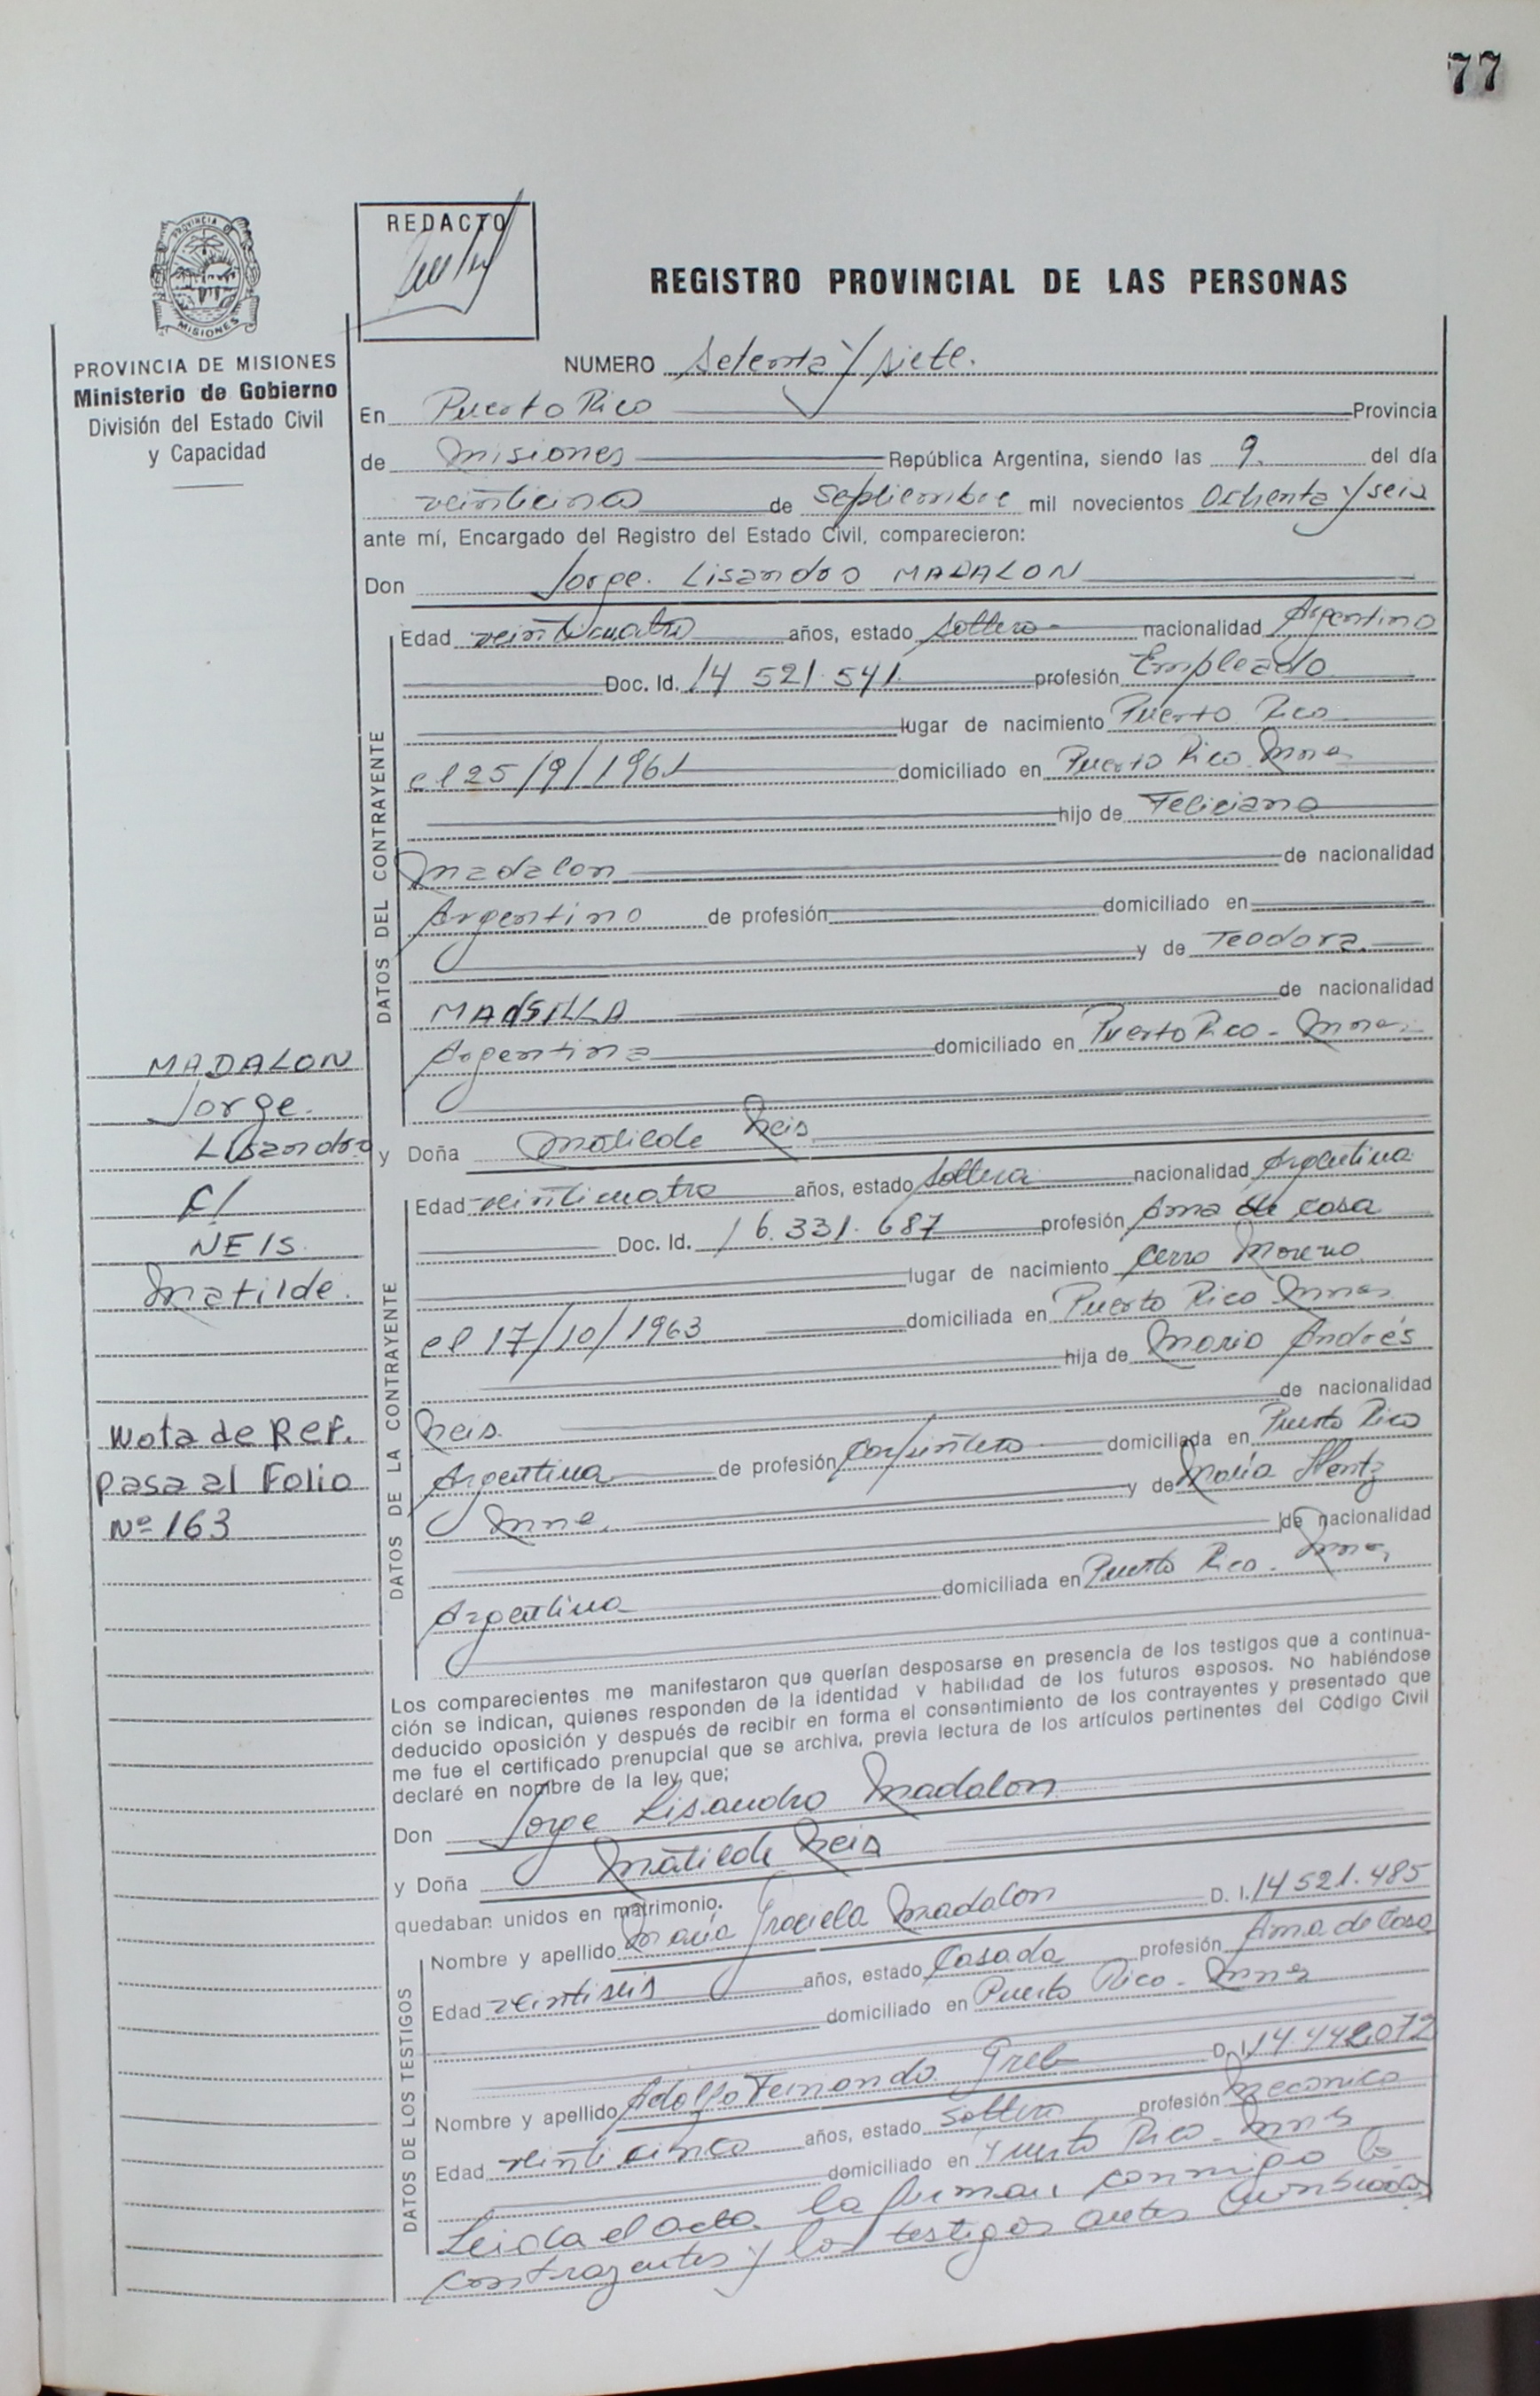 77
PROVINCIA DE
MISIONES
PROVINCIA DE MISIONES
Ministerio de Gobierno
División del Estado Civil
y Capacidad
REDACTO
REGISTRO PROVINCIAL DE LAS PERSONAS
NUMERO Setenta y siete.
En Puerto Rico Provincia
de Misiones República Argentina, siendo las 9 del día
veinticinco de Septiembre mil novecientos Ochenta y seis
ante mí, Encargado del Registro del Estado Civil, comparecieron:
Don Jorge Lisandro MADALON
DATOS DEL CONTRAYENTE
Edad veinticuatro años, estado soltero nacionalidad Argentino
Doc. Id. 14 521.541 profesión Empleado
lugar de nacimiento Puerto Rico
el 25/9/1961 domiciliado en Puerto Rico Mnes
hijo de Feliciano
Madalon de nacionalidad
Argentino de profesión domiciliado en
y de Teodora
MANSILLA de nacionalidad
Argentina domiciliado en Puerto Rico - Mnes
y Doña Matilde Neis
DATOS DE LA CONTRAYENTE
Edad veinticuatro años, estado soltera nacionalidad Argentina
Doc. Id. 16.331.687 profesión Ama de casa
lugar de nacimiento Cerro Moreno
el 17/10/1963 domiciliada en Puerto Rico Mnes
hija de Mario Andrés
Neis de nacionalidad
Argentina de profesión Carpintero domiciliada en Puerto Rico
Mnes. y de María Hentz
de nacionalidad
Argentina domiciliada en Puerto Rico - Mnes
MADALON
Jorge
Lisandro
C/
NEIS
Matilde.
Nota de Ref.
pasa al Folio
Nº 163
Los comparecientes me manifestaron que querían desposarse en presencia de los testigos que a continua-
ción se indican, quienes responden de la identidad y habilidad de los futuros esposos. No habiéndose
deducido oposición y después de recibir en forma el consentimiento de los contrayentes y presentado que
me fue el certificado prenupcial que se archiva, previa lectura de los artículos pertinentes del Código Civil
declaré en nombre de la ley que;
Don Jorge Lisandro Madalon
y Doña Matilde Neis
quedaban unidos en matrimonio.
DATOS DE LOS TESTIGOS
Nombre y apellido María Graciela Madalon D. I. 14 521.485
Edad veintiseis años, estado Casada profesión Ama de Casa
domiciliado en Puerto Rico - Mnes
Nombre y apellido Adolfo Fernando Greb D. I. 14.442.072
Edad veinticinco años, estado soltero profesión mecánico
domiciliado en Puerto Rico - Mnes
Leida el acta la firman conmigo los
contrayentes y los testigos antes nombrados